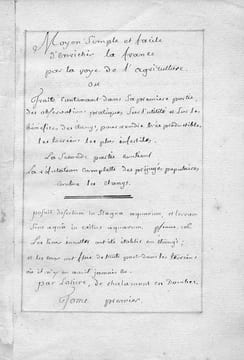 Moyen Simple et facile
d'enrichir la france
par la voye de l'agriculture.
ou
Traité contenant dans Sa premiere partie
des observations pratiques, Sur l'utilité et Sur les
bénéfices, des étangs, pour rendre très productibles,
les terreins les plus infertiles.
La Seconde partie contient
La réfutation complette des préjugés populaires,
contre les étangs.
posuit desertum in Stagna aquarum, et terram
Sine aquâ in exitus aquarum. pseaume
Les lieux ont été établis en étangs;
et les eaux ont été dans les terreins
où il n'y en avoit jamais
par de chalamont en dombes.
Tome premier.